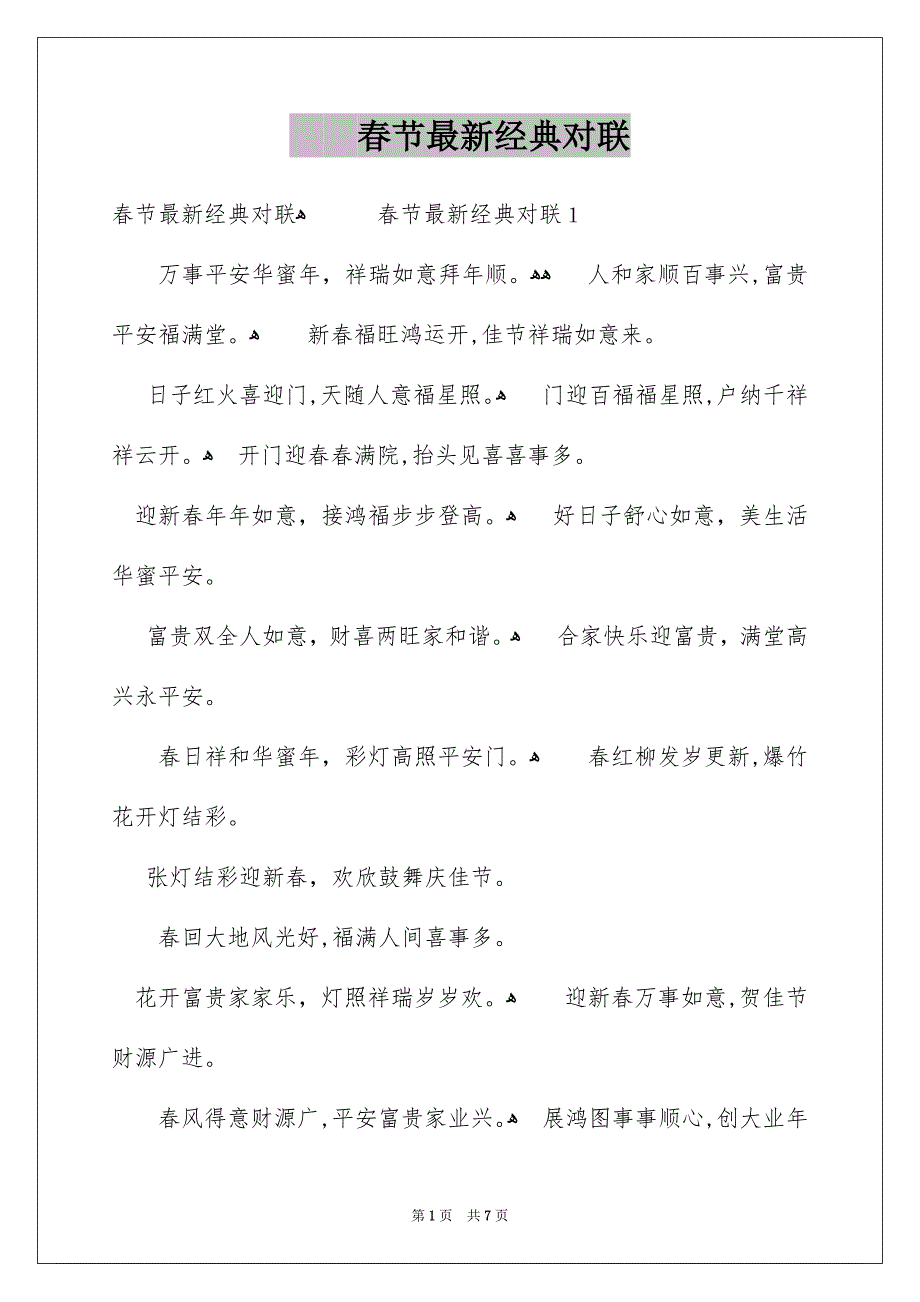 春节最新经典对联
春节最新经典对联ﻫ 春节最新经典对联1
万事平安华蜜年，祥瑞如意拜年顺。ﻫﻫ 人和家顺百事兴,富贵
平安福满堂。ﻫ 新春福旺鸿运开,佳节祥瑞如意来。
日子红火喜迎门,天随人意福星照。ﻫ 门迎百福福星照,户纳千祥
祥云开。ﻫ 开门迎春春满院,抬头见喜喜事多。
迎新春年年如意，接鸿福步步登高。ﻫ 好日子舒心如意，美生活
华蜜平安。
富贵双全人如意，财喜两旺家和谐。ﻫ 合家快乐迎富贵，满堂高
兴永平安。
春日祥和华蜜年，彩灯高照平安门。ﻫ 春红柳发岁更新,爆竹
花开灯结彩。
张灯结彩迎新春，欢欣鼓舞庆佳节。
春回大地风光好,福满人间喜事多。
花开富贵家家乐，灯照祥瑞岁岁欢。ﻫ 迎新春万事如意,贺佳节
财源广进。
春风得意财源广,平安富贵家业兴。ﻫ 展鸿图事事顺心,创大业年
第1页 共7页